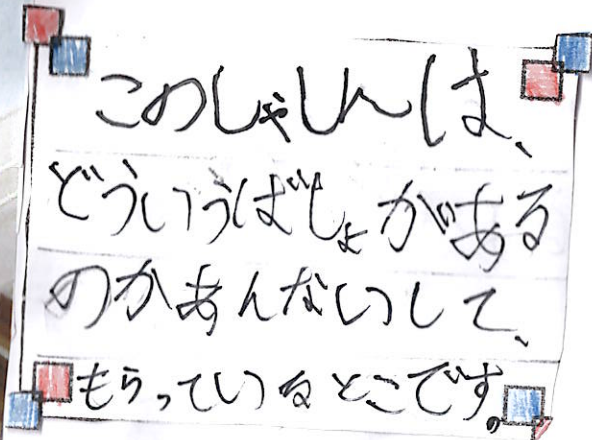 このしゃしんは、
どういうばしょがある
のかあんないして、
もらっているとこです。